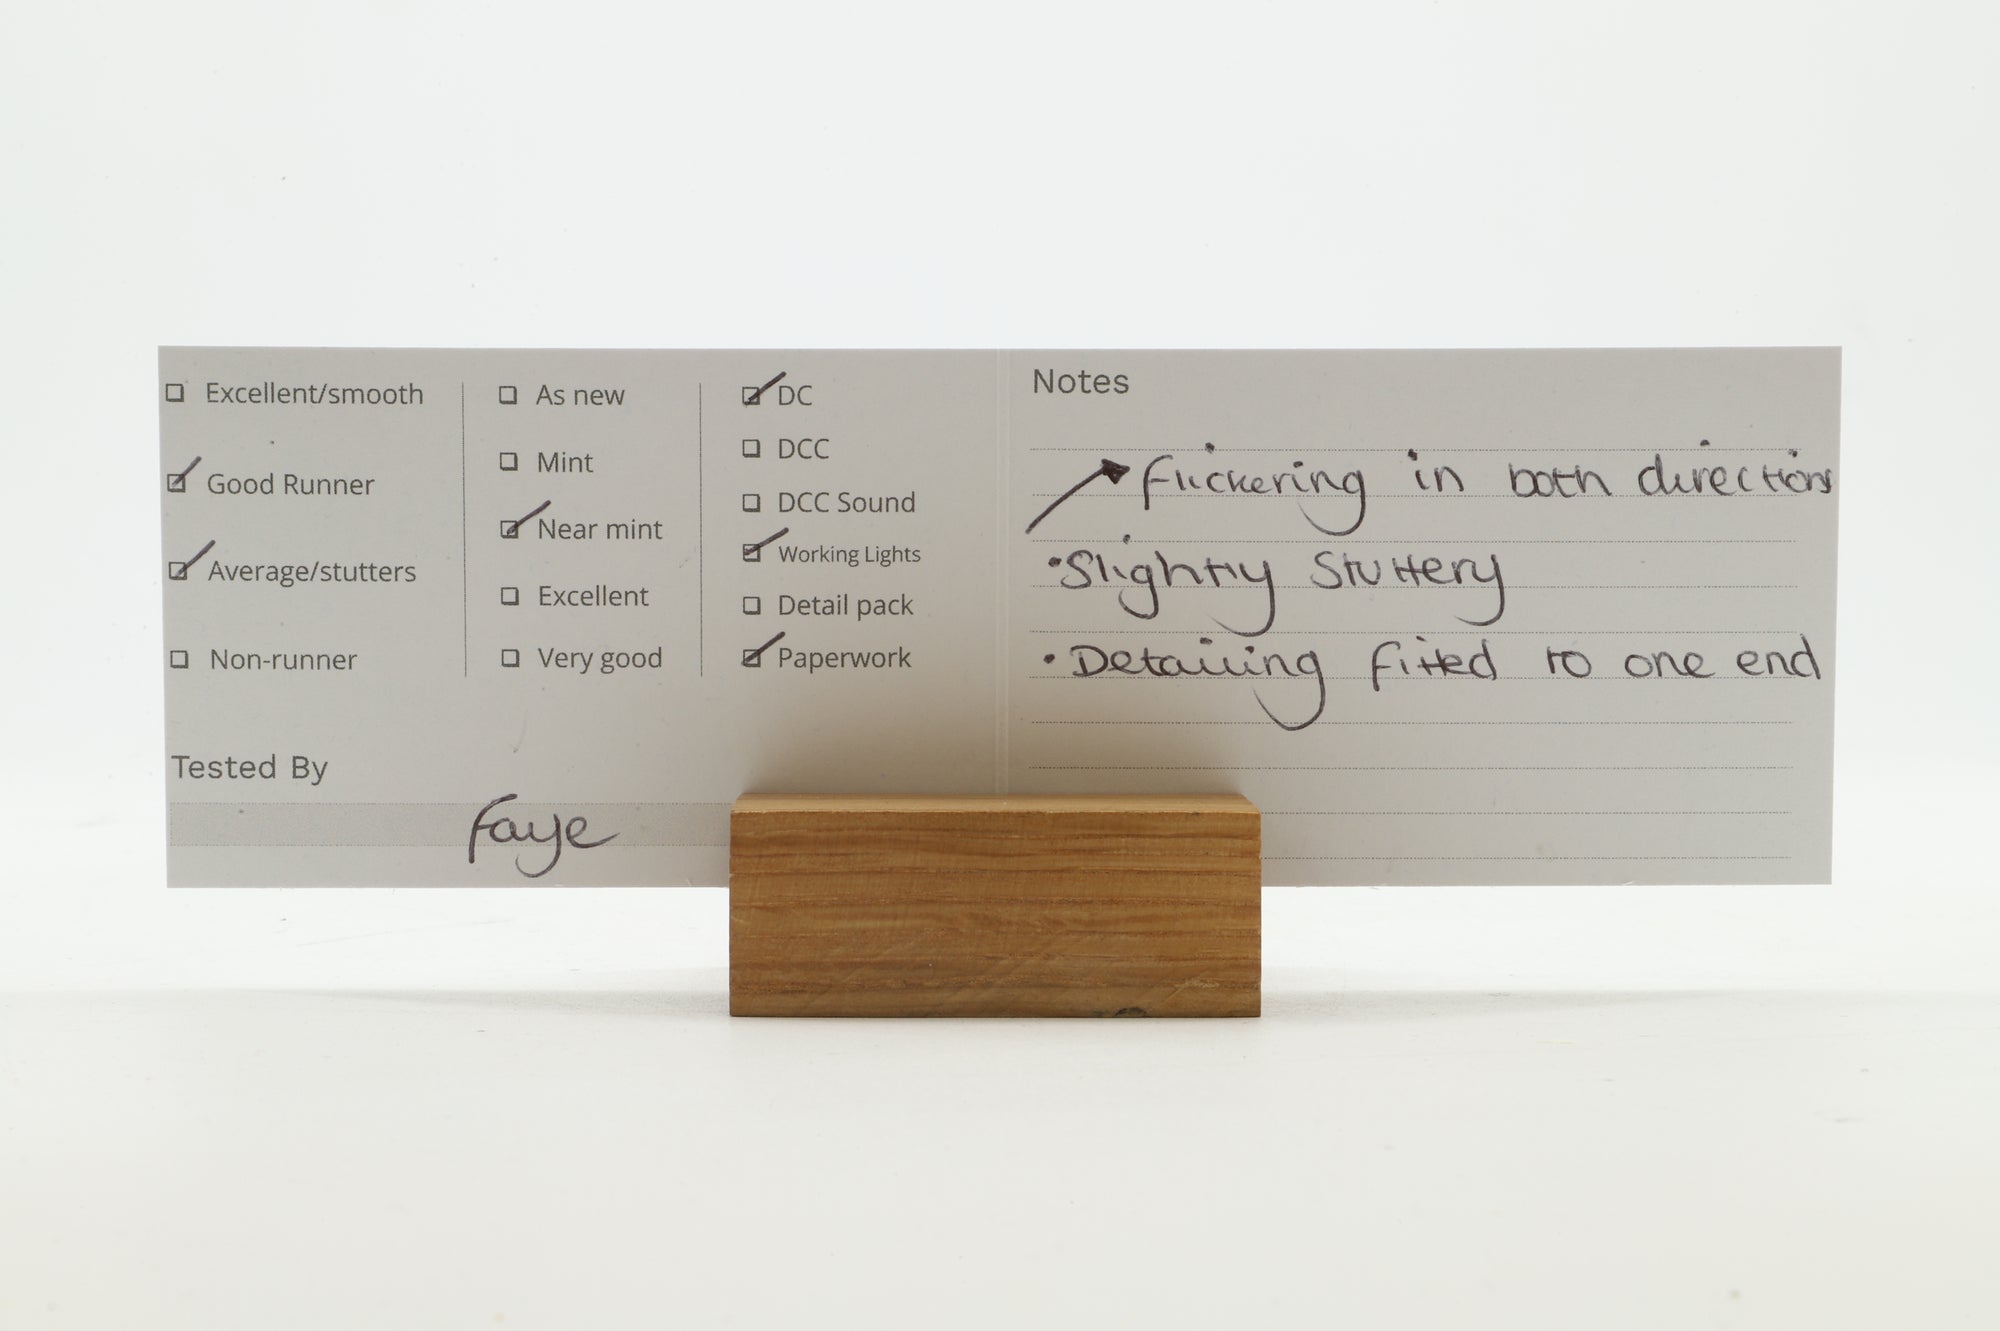 Excellent/smooth
Good Runner
Average/stutters
Non-runner
As new
Mint
Near mint
Excellent
Very good
DC
DCC
DCC Sound
Working Lights
Detail pack
Paperwork
Tested By
Faye
Notes
flickering in both directions
•Slightly Stuttery
•Detailing fitted to one end